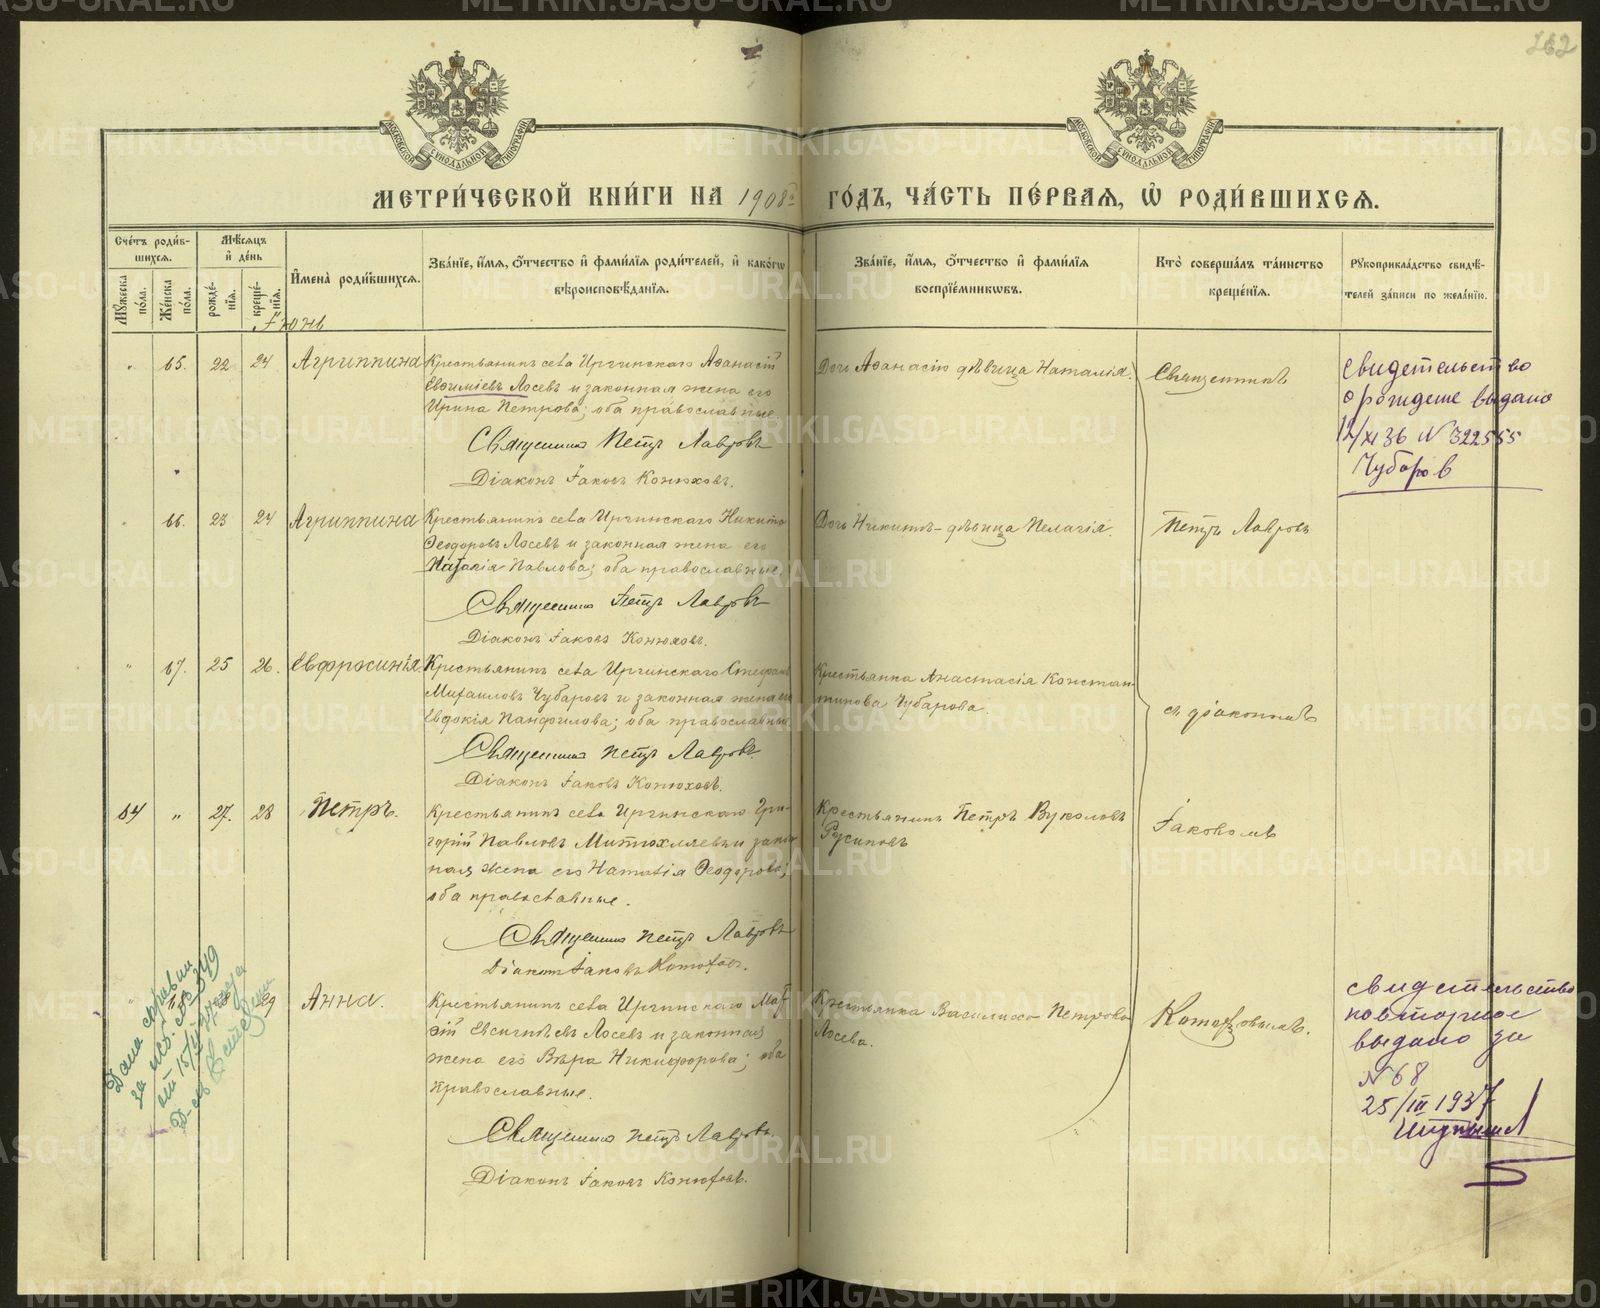 262
МОСКОВСКОЙ СѴНОДАЛЬНОЙ ТИПОГРАФІИ
МОСКОВСКОЙ СѴНОДАЛЬНОЙ ТИПОГРАФІИ
МЕТРИ́ЧЕСКОЙ КНИ́ГИ НА 1908й ГО́ДЪ, ЧА́СТЬ ПЕ́РВАѦ, Ѡ҆ РОДИ́ВШИХСѦ.
Сче́тъ роди́в-
шихсѧ.
Мꙋ́жеска по́ла.
Же́нска по́ла.
Мѣ́сѧцъ
и҆ де́нь
рожде́-
нїѧ.
креще́-
нїѧ.
И҆мена̀ роди́вшихсѧ.
Зва́нїе, и҆́мѧ, ѻ҆́тчество и҆ фами́лїѧ роди́телей, и҆ како́гѡ
вѣроисповѣ́данїѧ.
Зва́нїе, и҆́мѧ, ѻ҆́тчество и҆ фами́лїѧ
воспрїе́мникѡвъ.
Кто̀ соверша́лъ та́инство
креще́нїѧ.
Рꙋкоприкла́дство свидѣ́-
телей за́писи по жела́нїю.
Іюнь
" 65. 22 24 Агриппина Крестьянинъ села Иргинскаго Аѳанасій
Евѳиміевъ Лосевъ и законная жена его
Ирина Петрова; оба православные
Священникъ Петръ Лавровъ
Діаконъ Іаковъ Конюховъ.
Дочь Аѳанасію дѣвица Наталія.
Священникъ
Свидетельство
о рождение выдано
12/XI 36 N 322555
Чубаров
" 66. 23 24 Агриппина Крестьянинъ села Иргинскаго Никита
Ѳеодоровъ Лосевъ и законная жена его
Наталія Павлова; оба православные
Священникъ Петръ Лавровъ
Діаконъ Іаковъ Конюховъ.
Дочь Никитѣ - дѣвица Пелагія.
Петръ Лавровъ
" 67. 25 26. Евфросинія. Крестьянинъ села Иргинскаго Стефанъ
Михаиловъ Чубаровъ и законная жена его
Евдокія Панфилова; оба православные
Священникъ Петръ Лавровъ.
Діаконъ Іаковъ Конюховъ.
Крестьянка Анастасія Констан-
тинова Чубарова.
съ діакономъ
64 " 27. 28 Петръ. Крестьянинъ села Иргинскаго Гри-
горій Павловъ Митюхляевъ и закон-
ная жена его Наталія Ѳеодорова;
оба православные.
Священникъ Петръ Лавровъ
Діаконъ Іаковъ Конюховъ.
Крестьянинъ Петръ Вуколовъ
Русиновъ
Іаковомъ
" 68 29 Анна. Крестьянинъ села Иргинскаго Мат-
ѳій Евсигнѣевъ Лосевъ и законная
жена его Вѣра Никифорова; оба
православные.
Священникъ Петръ Лавровъ
Діаконъ Іаковъ Конюховъ.
Крестьянка Василисса Петрова
Лосева.
Конюховымъ.
свидетельство
повторное
выдано за
N 68
25/III 1937
Дана справка
METRIKI.GASO-URAL.RU